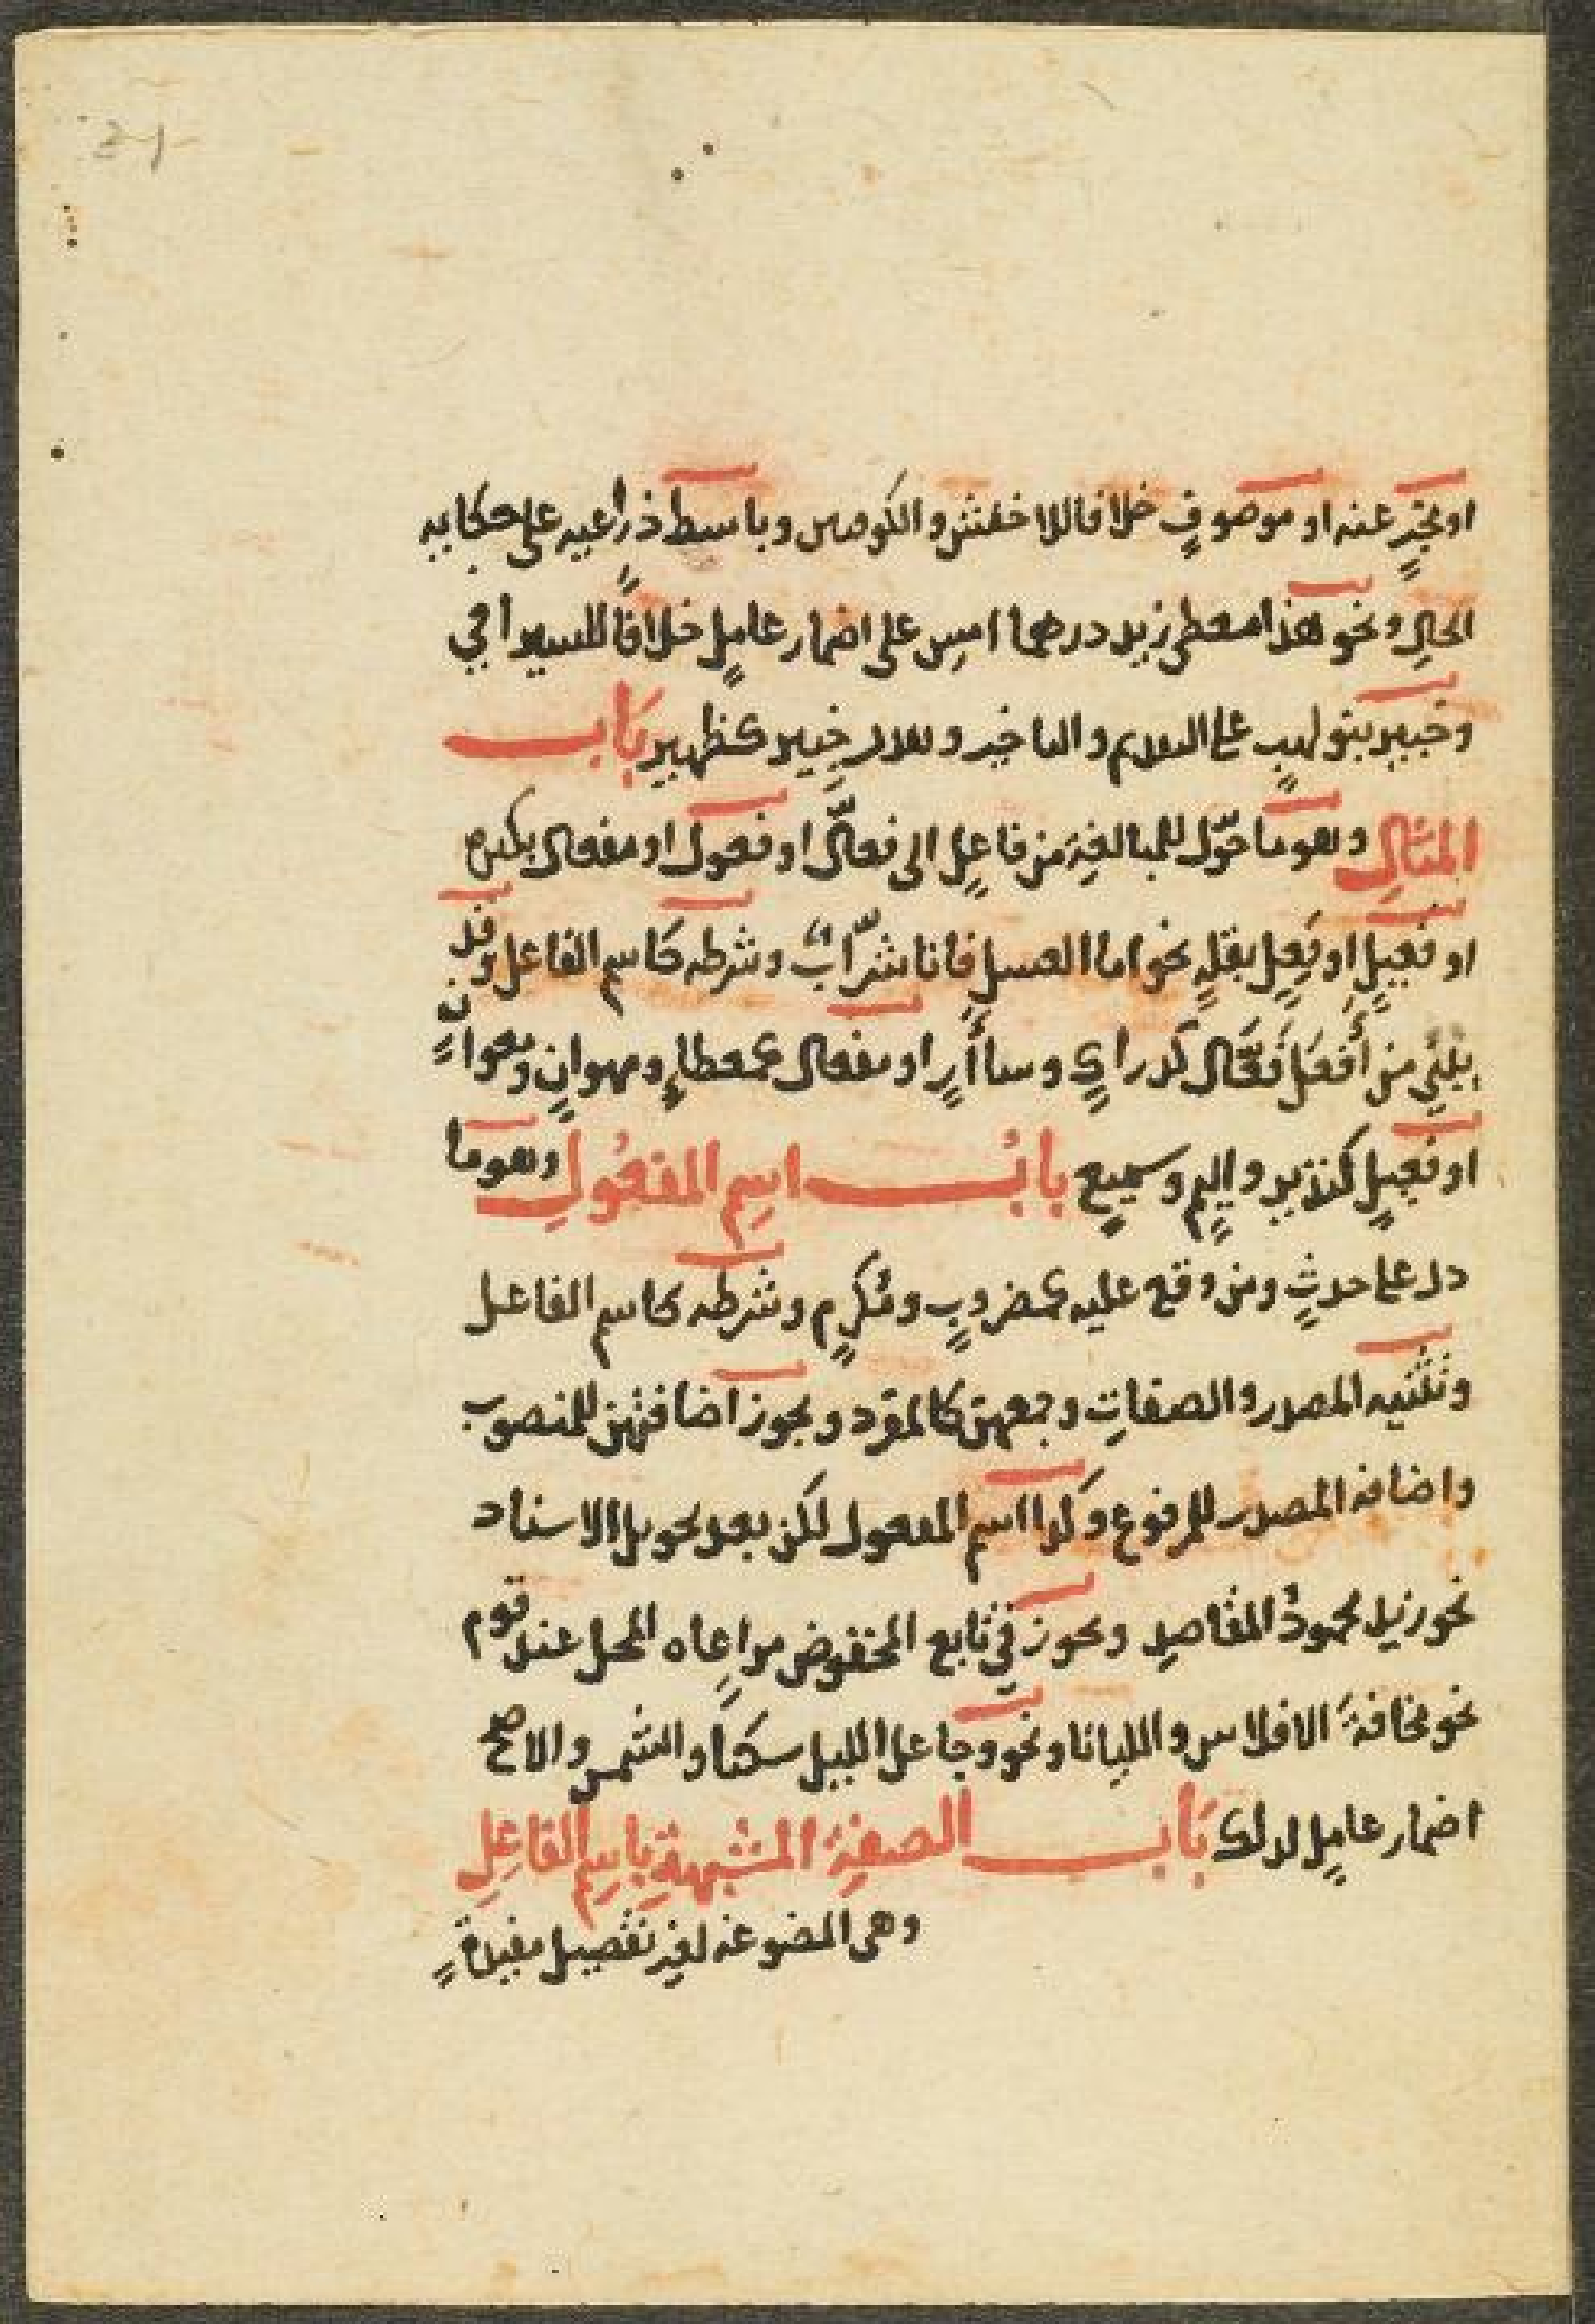 او مخبرٍ عنه او موصوفٍ خلافا للاخفش والكوفيين وباسط ذراعيه على حكايه
الحالِ ونحو هذا معطى زيد درهما امسِ على اضمار عاملٍ خلافًا للسيرافي
وخبير بنو لهبٍ على التقديم والتاخير وتقدير خبير كظهير بَابـــ
المثالِ وهو ما حوّل للمبالغة من فاعلٍ الى فعالّ او فعول او مفعال بكثرة
او فعيلٍ او فَعِلٍ بقلةٍ نحو اما العسل فانا شرّابٌ وشرطه كاسم الفاعل وقل
يبنى من أَفعَلَ فَعَّال كدراكٍ وسأارٍ او مفعال كمعطاءٍ ومهوانٍ ومعوانٍ
او فعيلٍ كنذير واليمٍ وسميعٍ بابُـــ اسِم المفعُولِ وهو ما
دل على حدثٍ ومن وقع عليه كمضروبٍ ومُكرَمٍ وشرطه كاسم الفاعل
وتثنيه المصدر والصفاتِ وجمعهن كالمفرد ويجوز اضافتهن للمنصوب
واضافه المصدر للمرفوع وكذا اسم المفعول لكن بعد تحويل الاسناد
نحو زيد محمودُ المقاصدِ ويجوز في تابع المخفوض مراعاه المحل عند قوم
نحو مخافةَ الافلاس والليانا ونحو وجاعل الليل سكنا والشمس والاصح
اضمار عاملٍ لذلك بَابـــ الصفةِ المشبهةِ باسِم الفاعِلِ
وهى المصوغه لغير تفضيل مفيدةٍ